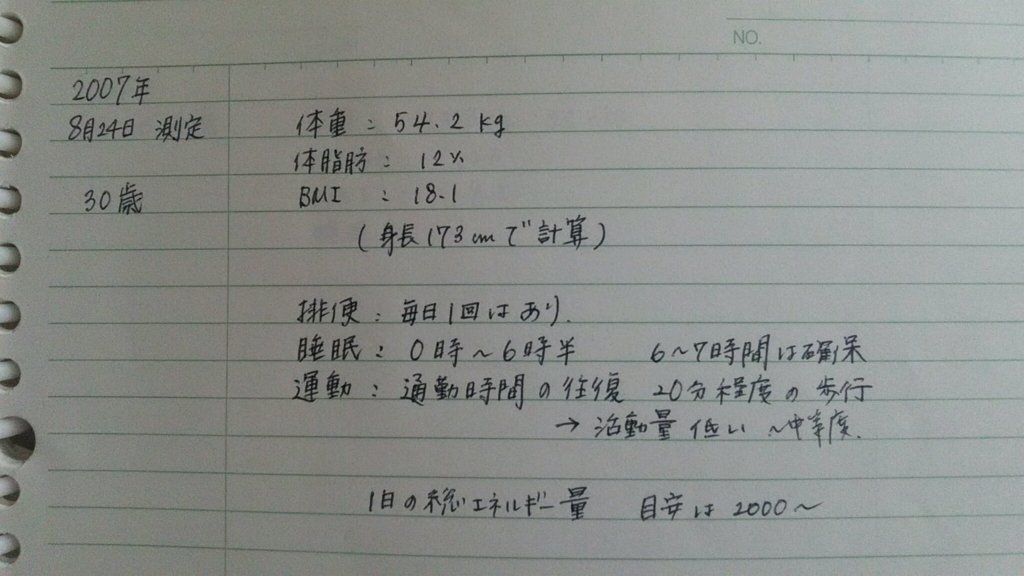 NO.
2007年
8月24日 測定
体重 : 54.2 kg
体脂肪 : 12%
30歳
BMI : 18.1
(身長173cmで計算)
排便 : 毎日1回はあり.
睡眠 : 0時～6時半 6～7時間は確保
運動 : 通勤時間の往復 20分程度の歩行
→ 活動量 低い ～中等度.
1日の総エネルギー量 目安は 2000～